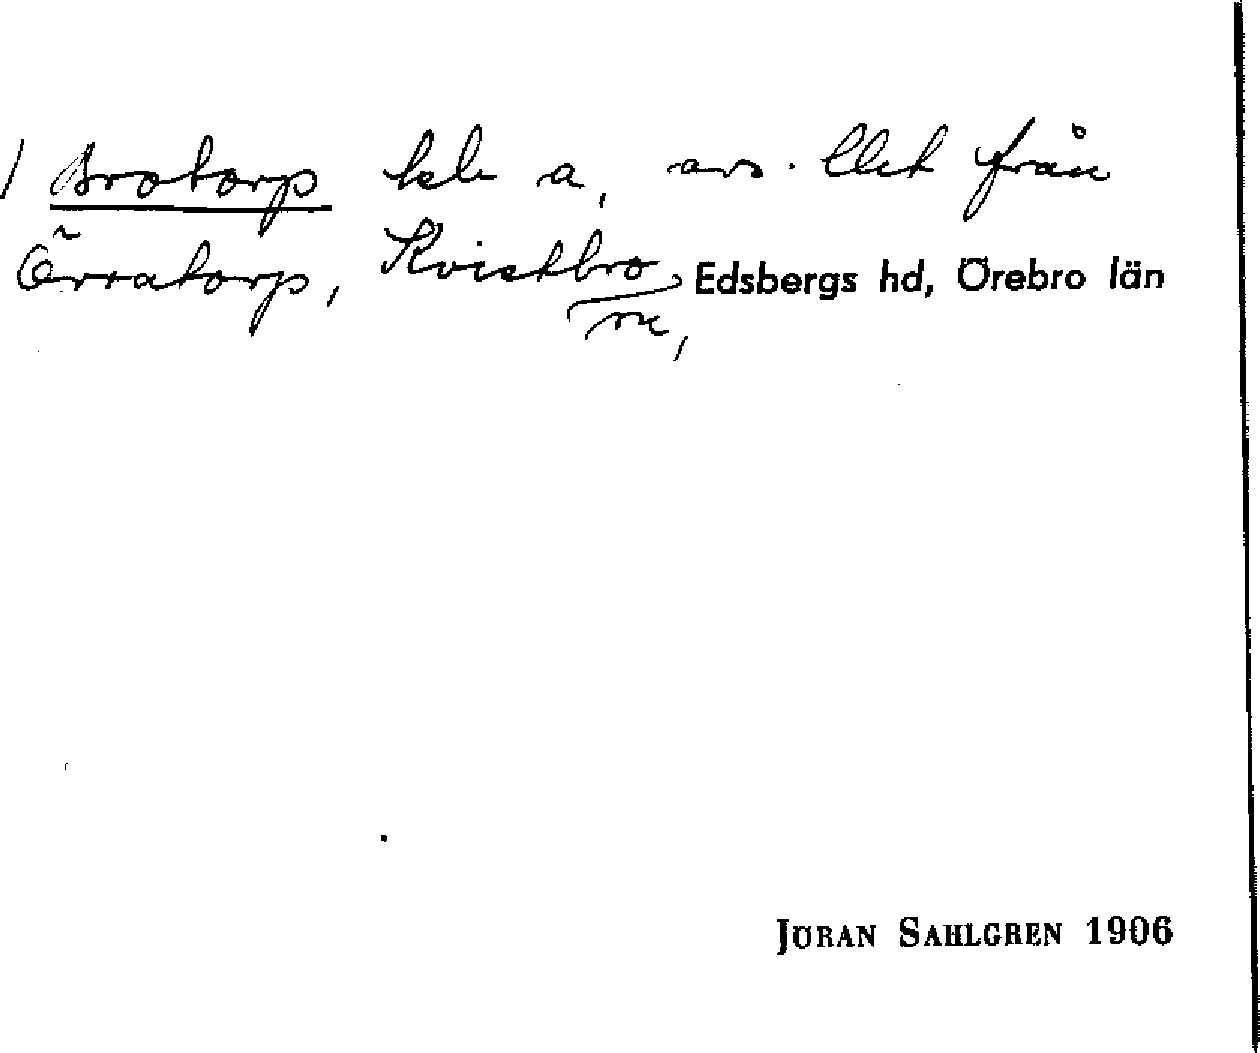 / Brotorp tele a, avs. Clet från
Örratorp, Kvistbro, Edsbergs hd, Örebro län
JÖRAN SAHLGREN 1906